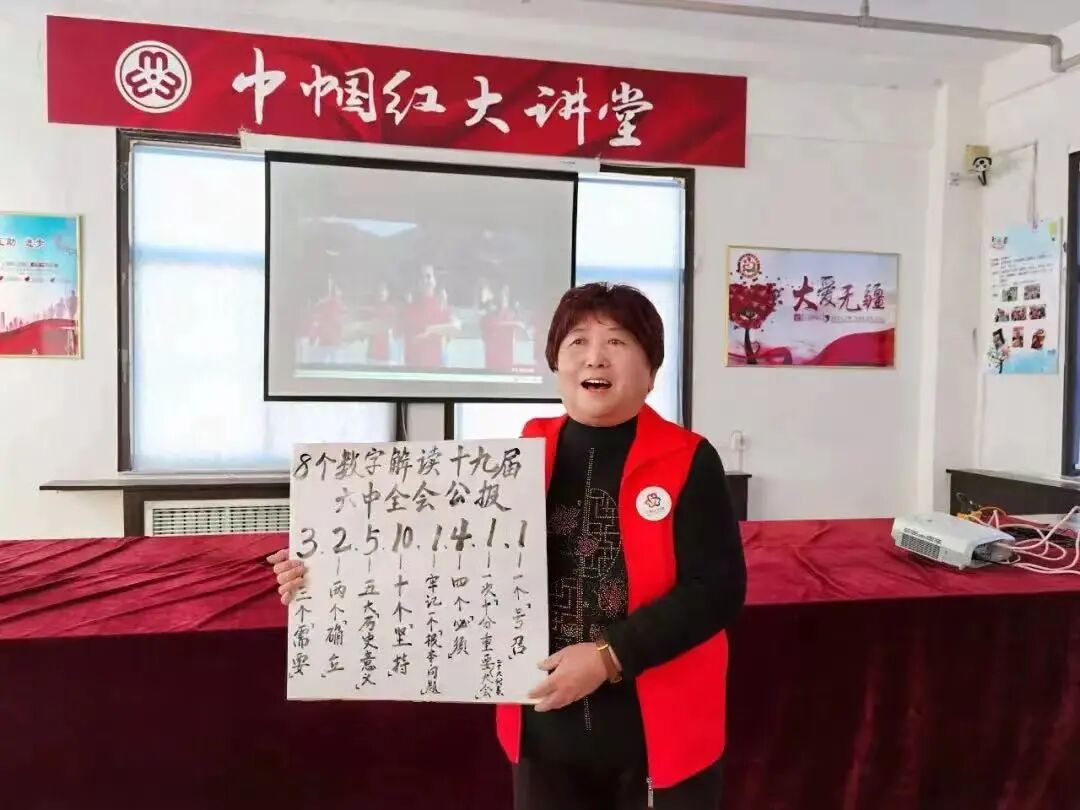 巾帼红大讲堂
助 进步
大爱无疆
8个数字解读十九届
六中全会公报
3.2.5.10.1.4.1.1
三个"需要"
两个"确立"
五大"历史意义"
十个"坚持"
牢记一个"根本问题"
四个"必须"
一次"十分重要大会"
一个"号召"